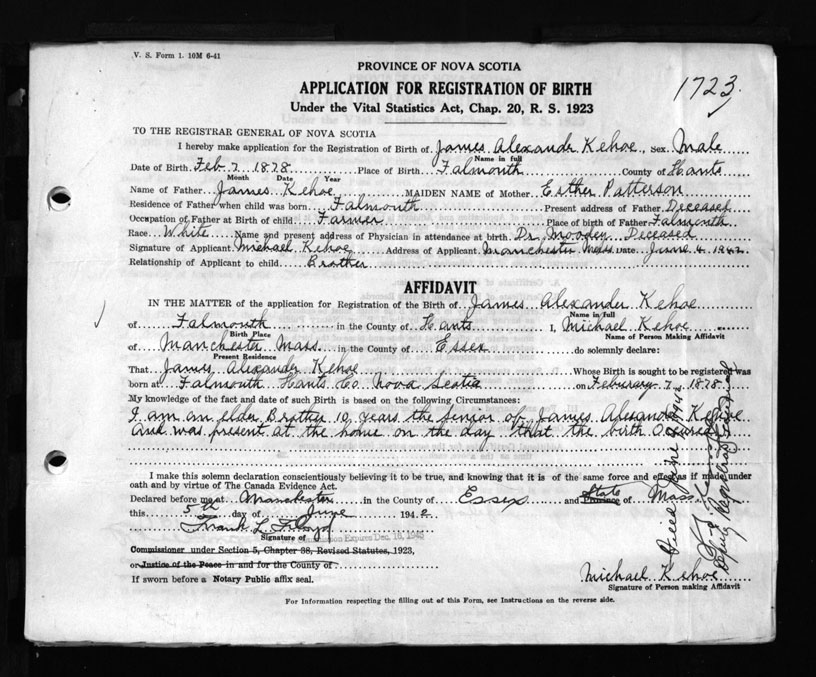 V. S. Form 1. 10M 6-41
PROVINCE OF NOVA SCOTIA
APPLICATION FOR REGISTRATION OF BIRTH
1723.
Under the Vital Statistics Act, Chap. 20, R. S. 1923
TO THE REGISTRAR GENERAL OF NOVA SCOTIA
I hereby make application for the Registration of Birth of James Alexander Kehoe, Sex Male
Name in full
Date of Birth. Feb. 7 1878 Place of Birth Falmouth County of Hants
Month Date Year
Name of Father James Kehoe MAIDEN NAME of Mother Esther Patterson
Residence of Father when child was born Falmouth Present address of Father Deceased
Occupation of Father at Birth of child Farmer Place of birth of Father Falmouth
Race White Name and present address of Physician in attendance at birth. Dr. Deceased
Signature of Applicant Michael Kehoe Address of Applicant Manchester Mass Date June 4 1942
Relationship of Applicant to child Brother
AFFIDAVIT
IN THE MATTER of the application for Registration of the Birth of James Alexander Kehoe
Name in full
of Falmouth in the County of Hants I, Michael Kehoe
Birth Place Name of Person Making Affidavit
of Manchester Mass. in the County of Essex do solemnly declare:
Present Residence
That James Alexander Kehoe Whose Birth is sought to be registered was
born at Falmouth Hants Co. Nova Scotia on Feburary 7 1878
My knowledge of the fact and date of such Birth is based on the following Circumstances:
I am an elder Brother 10 years the Senior of James Alexander Kehoe
and was present at the home on the day that the birth Occured
I make this solemn declaration conscientiously believing it to be true, and knowing that it is of the same force and effect as if made under
oath and by virtue of The Canada Evidence Act.
Declared before me at Manchester in the County of Essex and State Province of Mass
this 5th day of June 1942
Frank L. Floyd
Signature of
Commission Expires Dec. 18, 1942
Commissioner under Section 5, Chapter 38, Revised Statutes, 1923,
or Justice of the Peace in and for the County of
If sworn before a Notary Public affix seal.
Michael Kehoe
Signature of Person making Affidavit
Deputy Registrar General
For Information respecting the filling out of this Form, see Instructions on the reverse side.